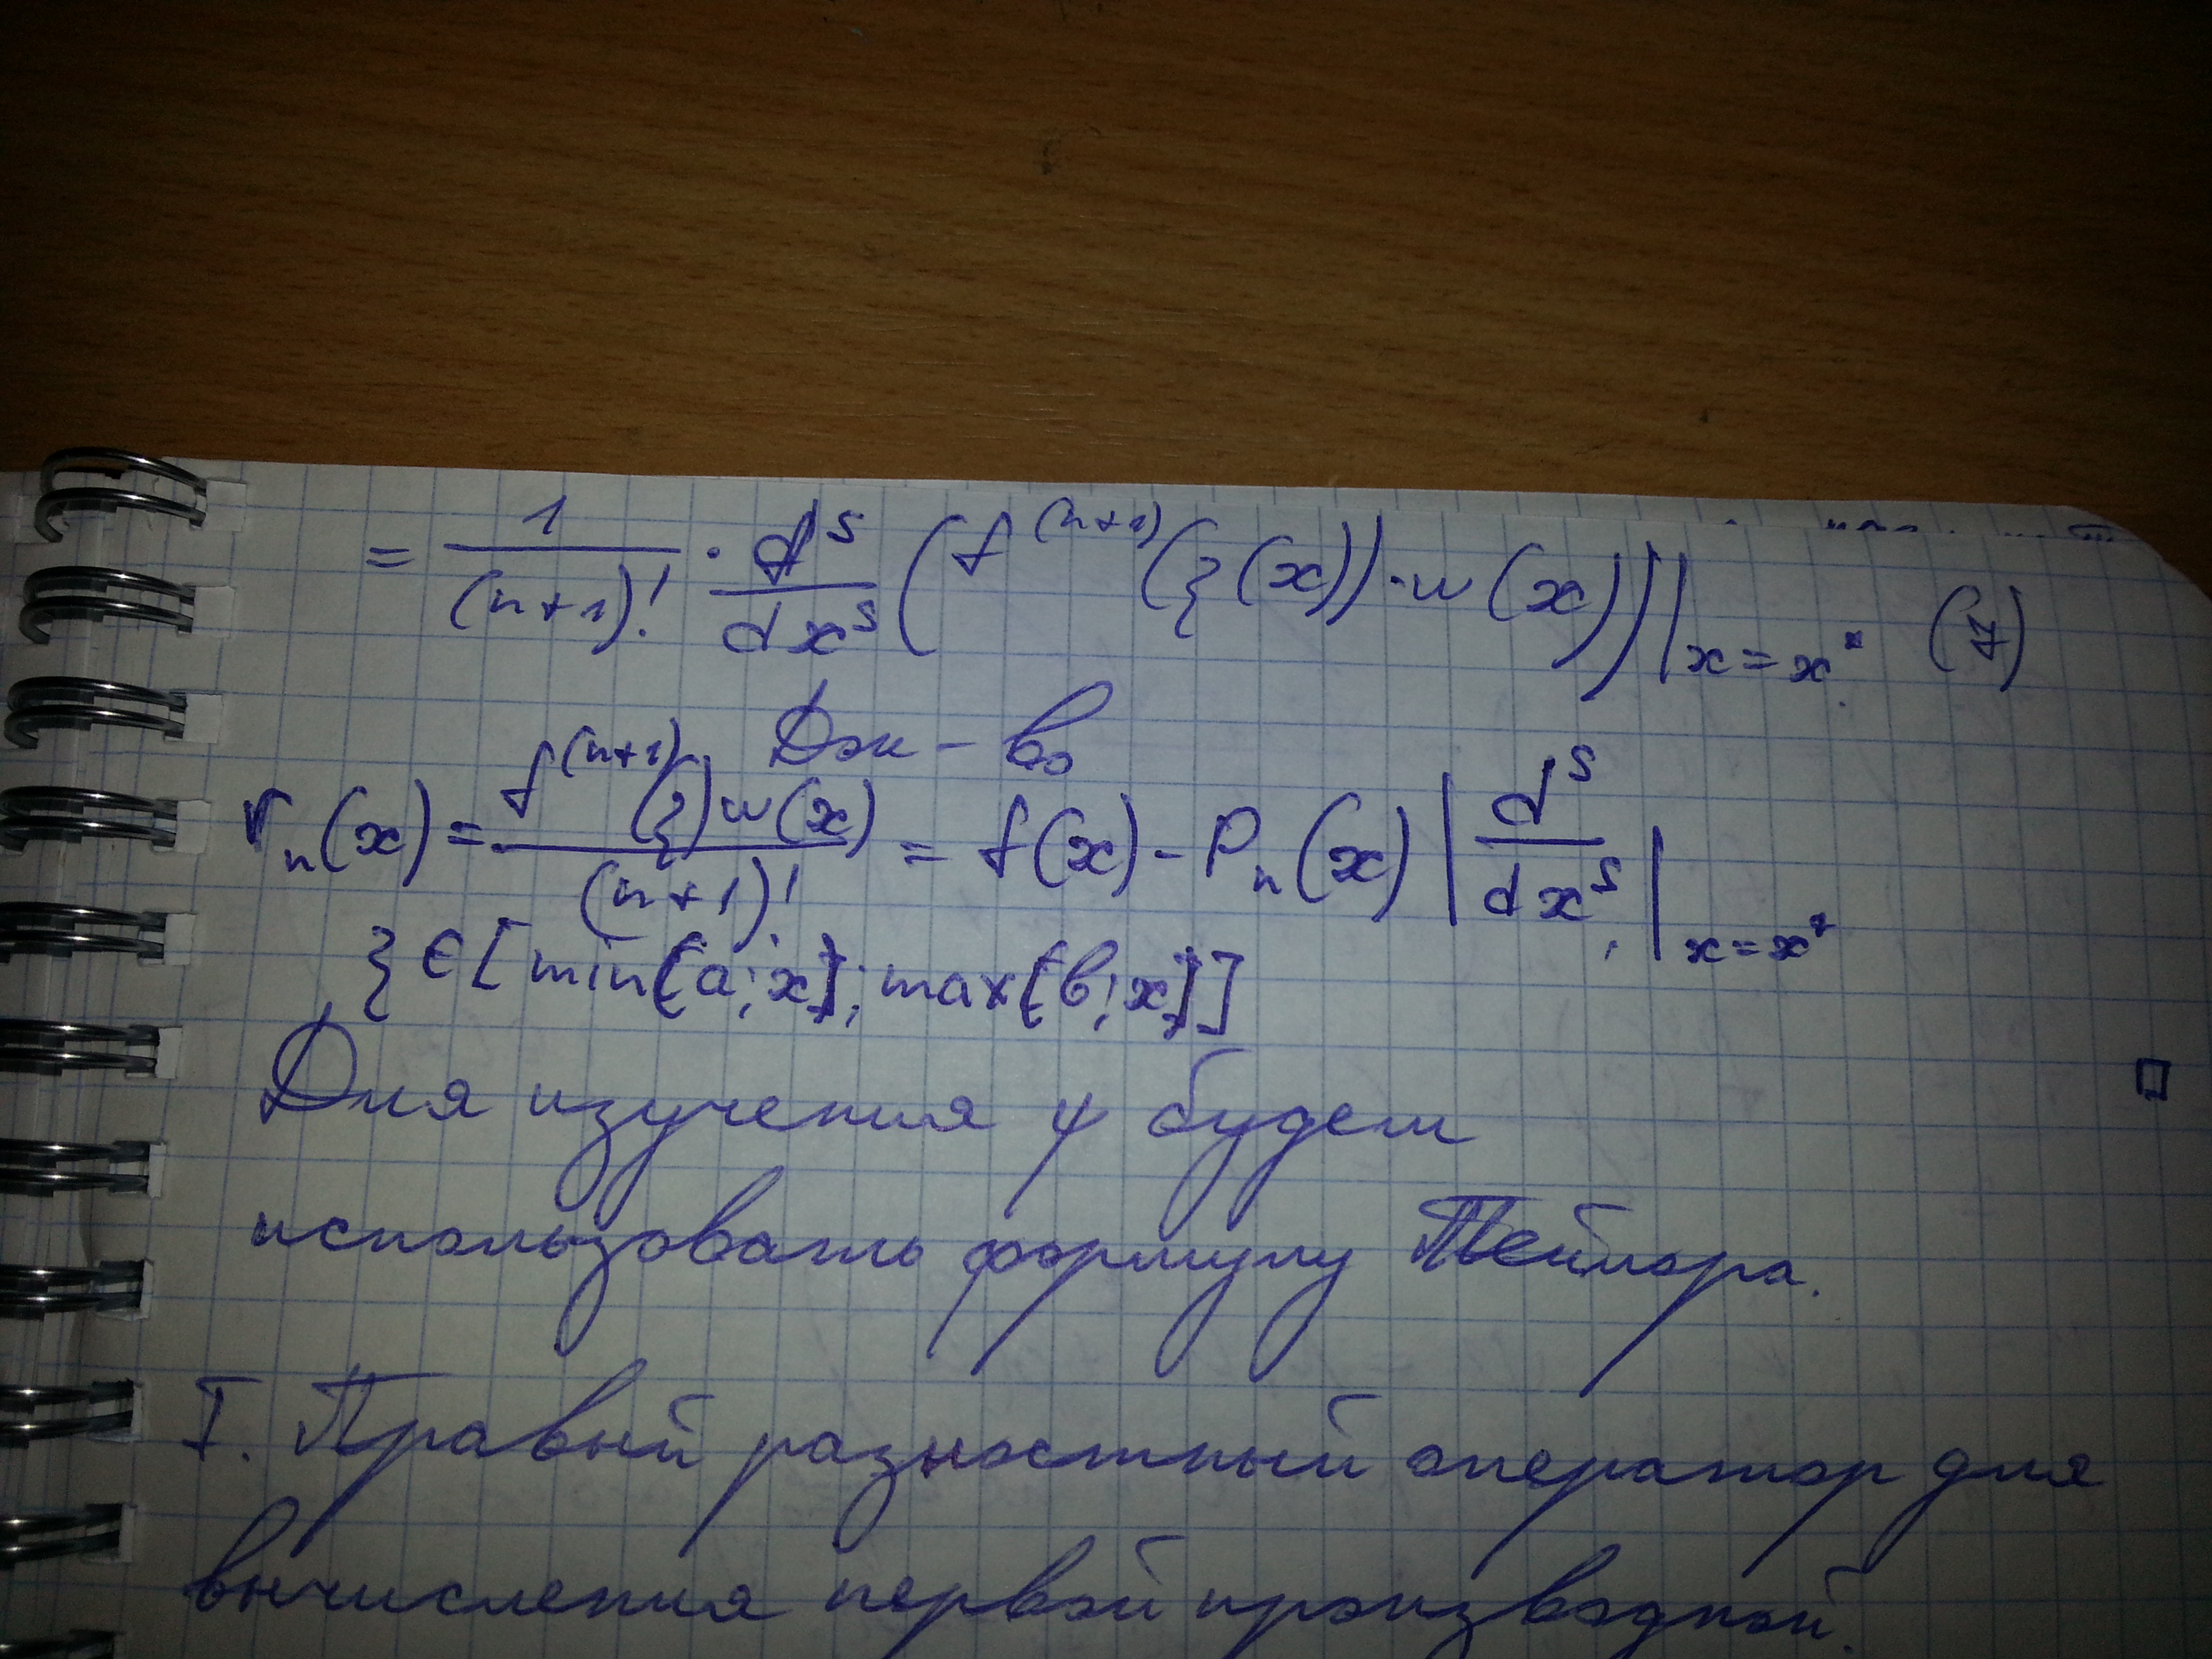 = 1/(n+1)! · d^s/dx^s (f^(n+1)(ξ(x))·w(x))|x=x* (7)
Док-во
r_n(x) = f^(n+1)(ξ)w(x)/(n+1)! = f(x) - P_n(x) | d^s/dx^s |x=x*
ξ ∈ [min{a;x}; max{b;x}]
□
Для изучения ψ будем
использовать формулу Тейлора.
I. Правый разностный оператор для
вычисления первой производной.